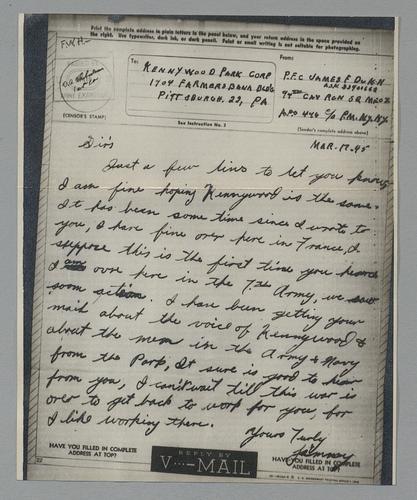 Print the complete address in plain letters in the panel below, and your return address in the space provided on
the right. Use typewriter, dark ink, or dark pencil. Faint or small writing is not suitable for photographing.
To:
KENNYWOOD PARK CORP
1704 FARMERS BANK BLD'G
PITTSBURGH, 22, PA
From:
P.F.C JAMES F. DUNN
94TH CAV RCN SQ MECZ
APO 446 C/O P.M. N.Y. N.Y.
(CENSOR'S STAMP)
See Instruction No. 2
(Sender's complete address above)
MAR. 17. 45
Sir's
Just a few lins to let you know
I am fine hoping Kennywood is the same.
It has been some time since I wrote to
you, I have fine over here in France, I
suppose this is the first time you heard
I am over here in the 7th Army, we saw
som action. I have been getting your
mail about the voice of Kennywood &
about the men in the Army & Navy
from the Park, It sure is good to hear
from you, I can't wait till this war is
over to get back to work for you, for
I like working there.
Yours Truly
HAVE YOU FILLED IN COMPLETE
ADDRESS AT TOP?
REPLY BY
V···—MAIL
HAVE YOU FILLED IN COMPLETE
ADDRESS AT TOP?